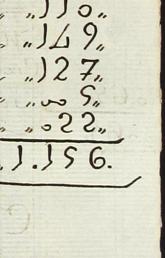 „110„
„149„
„127„
„005„
„022„
1.156.